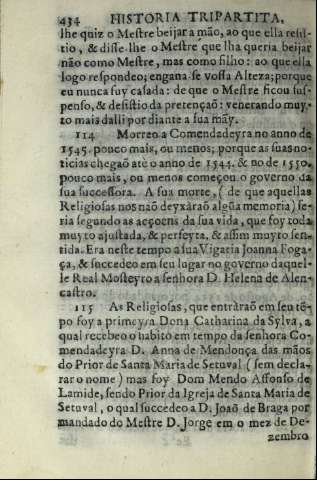 434 HISTORIA TRIPARTITA,
lhe quiz o Mestre beijar a mão, ao que ella resis-
tio, & disse-lhe o Mestre que lha queria beijar
não como Mestre, mas como filho: ao que ella
logo respondeo; engana-se vossa Alteza; porque
eu nunca fuy casada: de que o Mestre ficou sus-
penso, & desistio da pretençaõ: venerando muy-
to mais dalli por diante a sua mãy.
114 Morreo a Comendadeyra no anno de
1545. pouco mais, ou menos; porque as suas no-
ticias chegaõ atè o anno de 1544. & no de 1550.
pouco mais, ou menos começou o governo da
sua successora. A sua morte, (de que aquellas
Religiosas nos não deyxàraõ algũa memoria) se-
ria segundo as acçoens da sua vida, que foy toda
muyto ajustada, & perfeyta, & assim muyto sen-
tida. Era neste tempo a sua Vigaria Joanna Foga-
ça, & succedeo em seu lugar no governo daquel-
le Real Mosteyro a senhora D. Helena de Alen-
castro.
115 As Religiosas, que entràraõ em seu tẽ-
po foy a primeyra Dona Catharina da Sylva, a
qual recebeo o habito em tempo da senhora Co-
mendadeyra D. Anna de Mendonça das mãos
do Prior de Santa Maria de Setuval (sem decla-
rar o nome) mas foy Dom Mendo Affonso de
Lamide, sendo Prior da Igreja de Santa Maria de
Setuval, o qual succedeo a D. Joaõ de Braga por
mandado do Mestre D. Jorge em o mez de De-
zembro